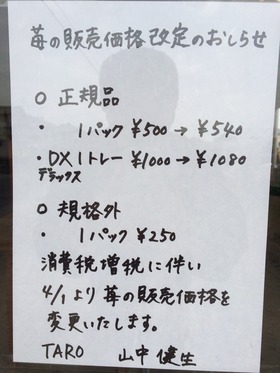 苺の販売価格改定のおしらせ
○ 正規品
・ 1パック ¥500→¥540
・DX 1トレー ¥1000→¥1080
デラックス
○ 規格外
・ 1パック ¥250
消費税増税に伴い
4/1より苺の販売価格を
変更いたします。
TARO 山中健生